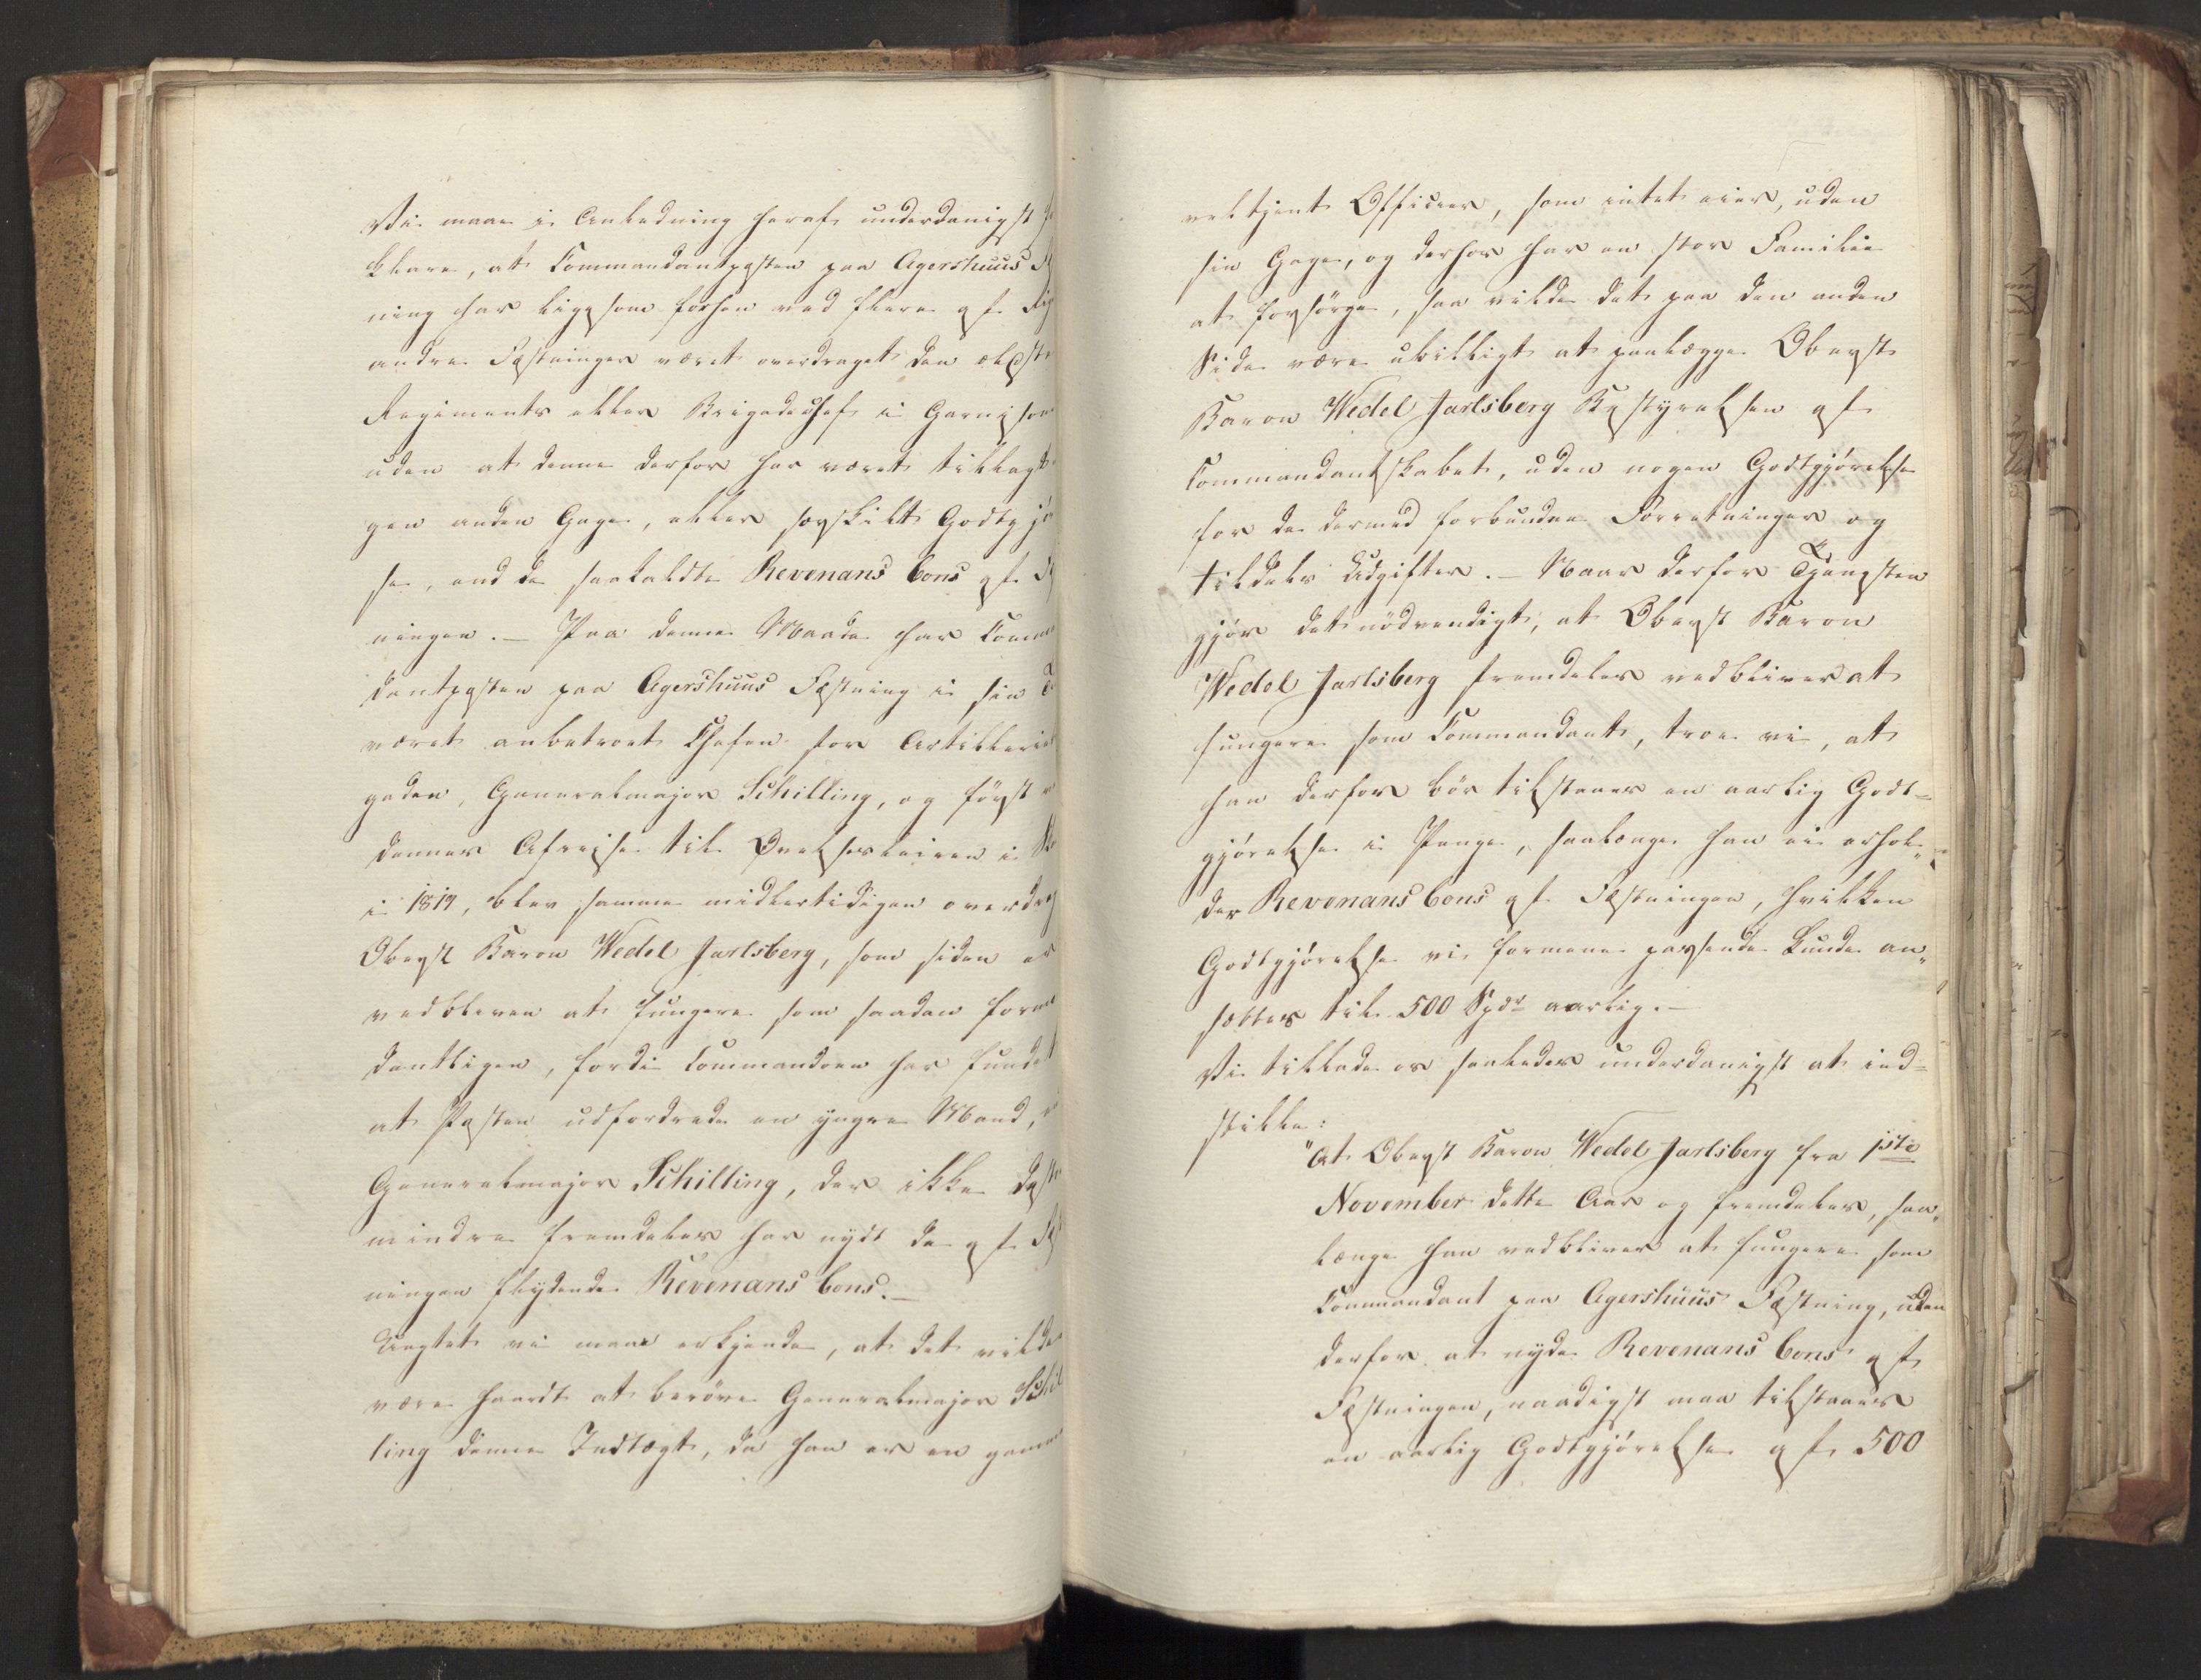 Vi maae i Anledning heraf underdanigst
klare, at Commandantposten paa Agershuus
ning har ligesom forhen ved flere af
andre Fæstninger været overdraget den ældste
Regiments eller Brigadechef i Garnison
uden at denne derfor har været tillagt
gen anden Gage, eller særskilt Godtgjø
se, end de saakaldte Revenans bons af
ningen. – Paa denne Maade har Comm
dantposten paa Agershuus Fæstning i sin
været anbetroet Chefen for Artillerie
gaden, Generalmajor Schilling, og først
dennes Afreise til Øvelsesleiren i
i 1819, blev samme midlertidigen overdrag
Oberst Baron Wedel Jarlsberg, som siden er
vedbleven at fungere som saadan
dantligen, fordi Commandoen har fundet
at Posten udfordrede en yngre Mand,
Generalmajor Schilling, der ikke desto
mindre fremdeles har nydt de af
ningen flydende Revenans bons. –
Uagtet vi maae erkjende, at det vilde
være haardt at berøve Generalmajor Schil
ling denne Indtægt, da han er en gam
veltjent Officier, som intet eier, uden
sin Gage, og derhos har en stor Familie
at forsørge, saa vilde det paa den anden
Side være ubilligt at paalægge Oberst
Baron Wedel Jarlsberg Bestyrelsen af
Commandantskabet, uden nogen Godtgjørelse
for de dermed forbundne Forretninger og
tildels Udgifter. – Naar derfor Tjenesten
gjør det nødvendigt, at Oberst Baron
Wedel Jarlsberg fremdeles vedbliver at
fungere som Commandant, troe vi, at
han derfor bør tilstaaes en aarlig Godt=
gjørelse i Penge, saalænge han ei erhol„
der Revenans bons af Fæstningen, hvilken
Godtgjørelse vi formene passende kunde an„
sættes til 500 Spdr aarlig. –
Vi tillade os saaledes underdanigst at ind=
stille:
"At Oberst Baron Wedel Jarlsberg fra 1ste
November dette Aar og fremdeles, saa„
længe han vedbliver at fungere som
Commandant paa Agershuus Fæstning, uden
derfor at nyde Revenans bons af
Fæstningen, naadigst maa tilstaaes
en aarlig Godtgjørelse af 500